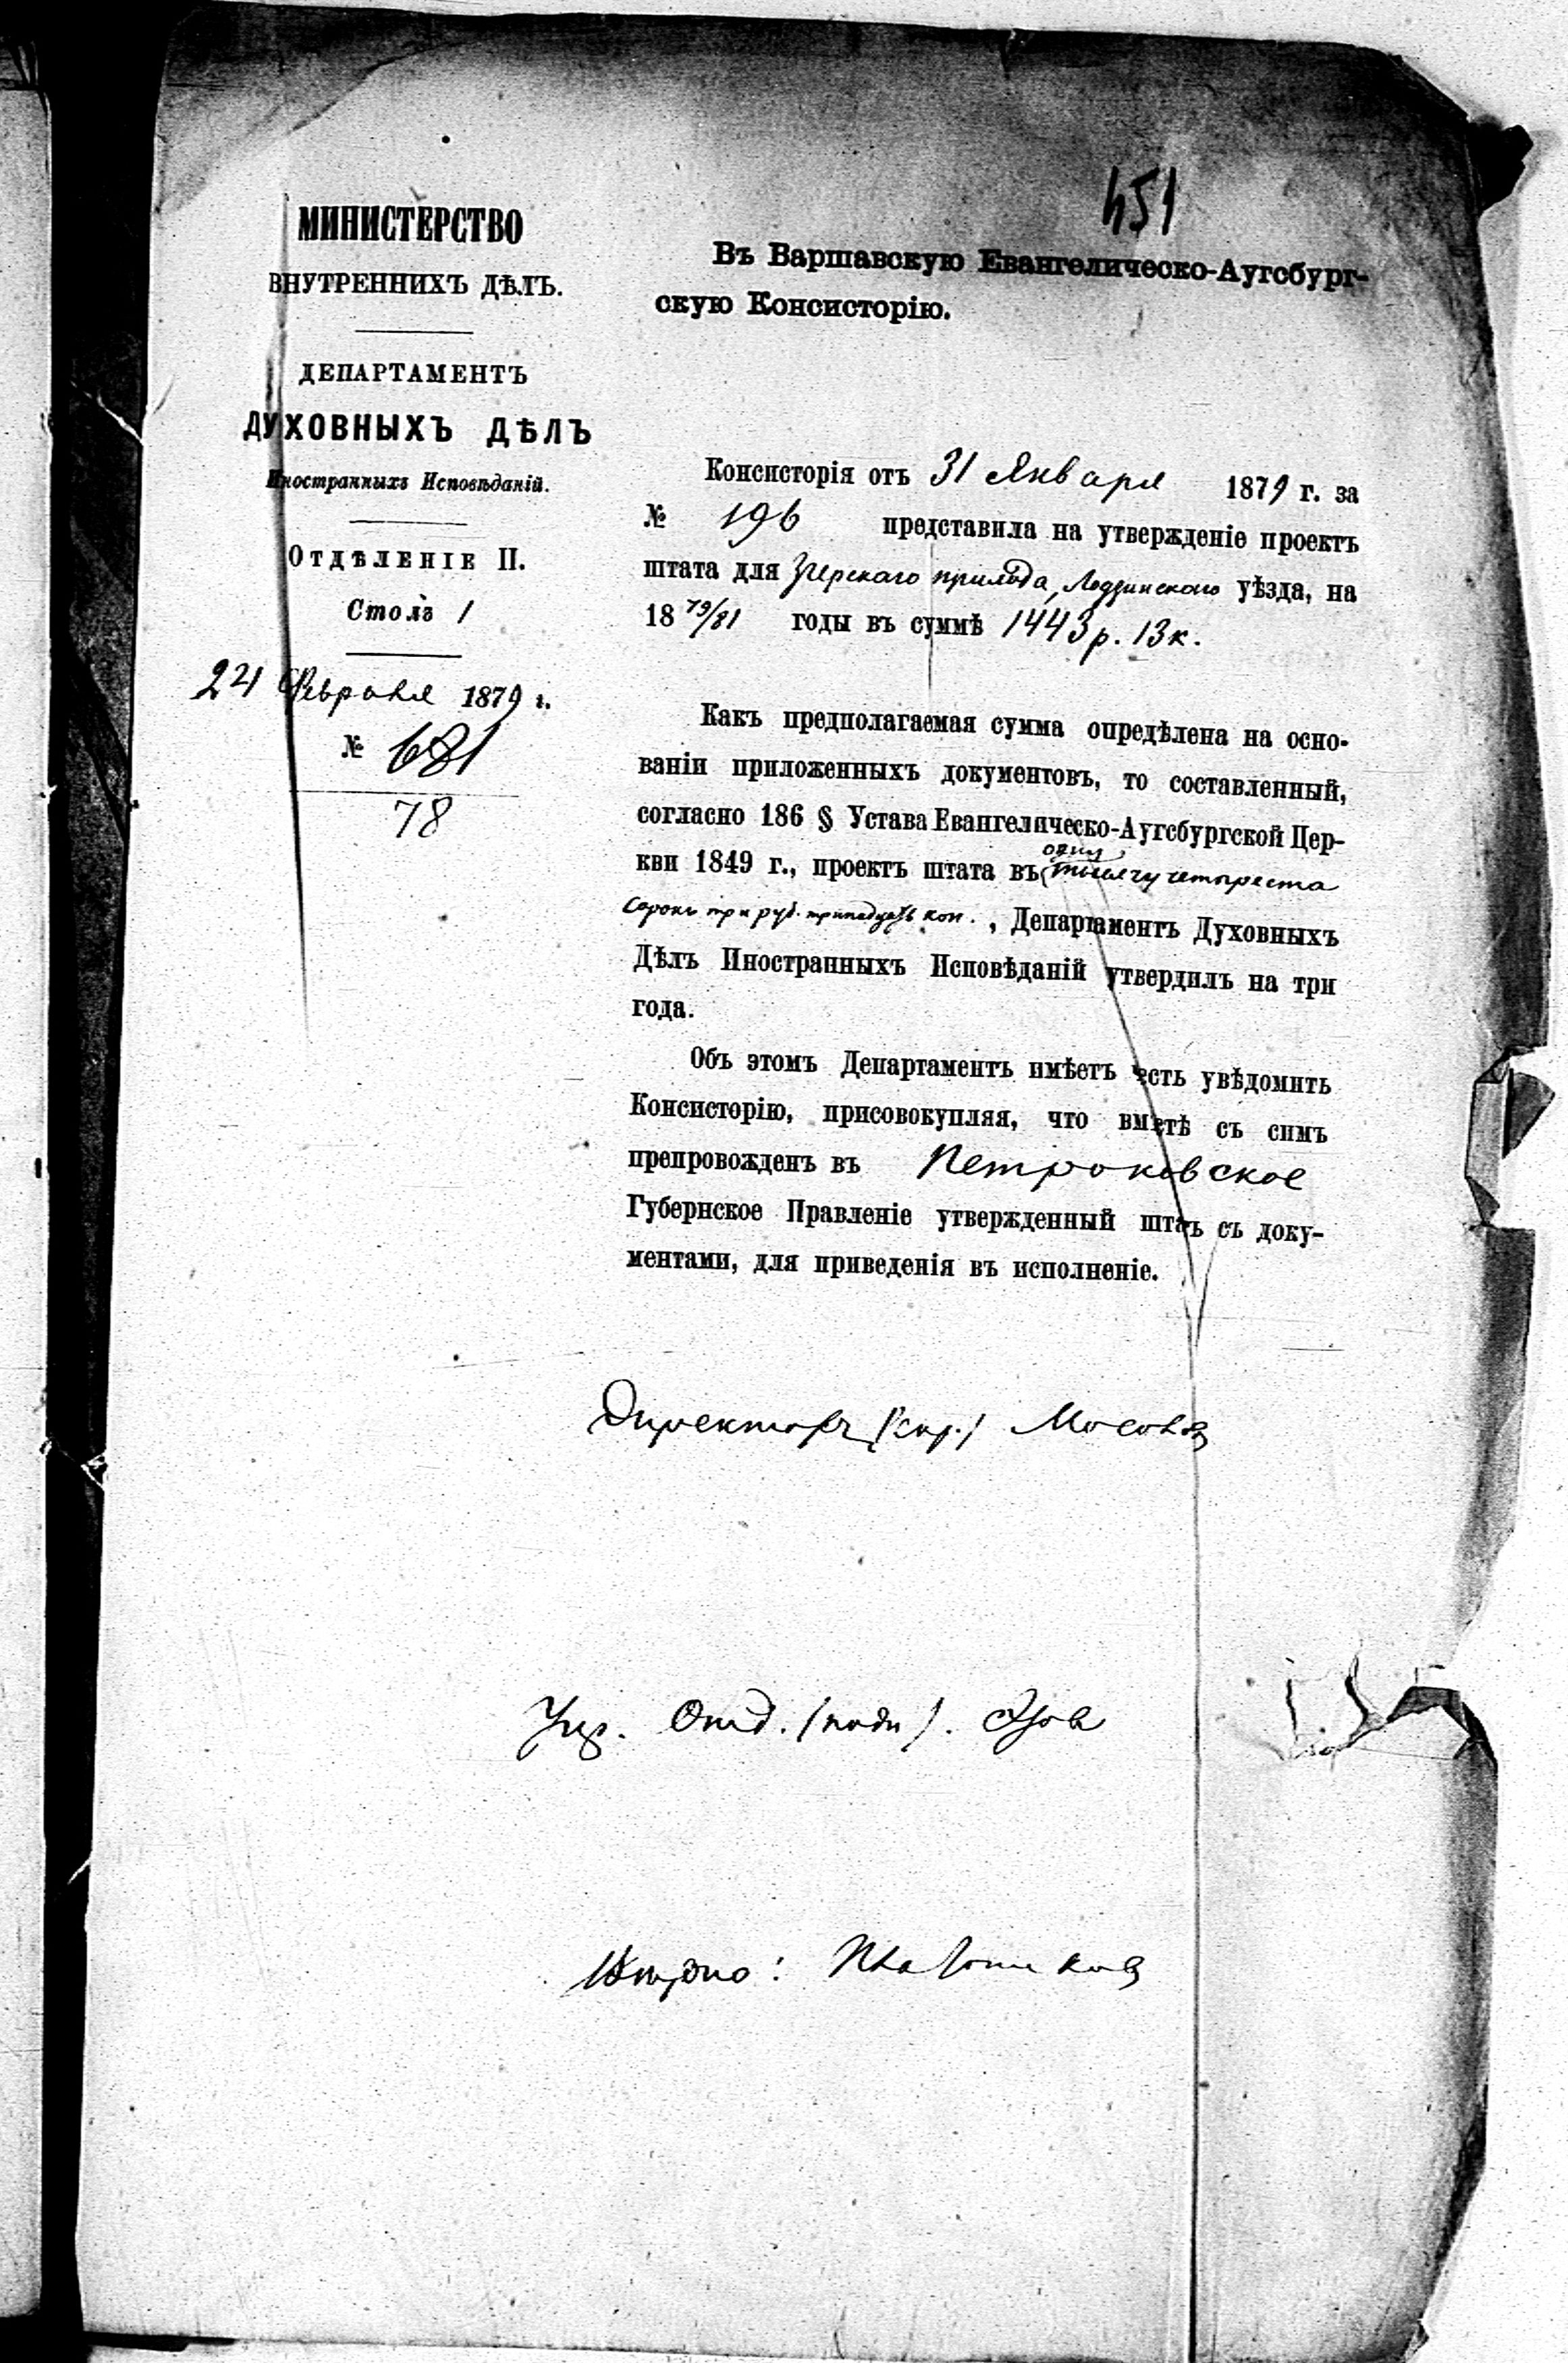 451
МИНИСТЕРСТВО
ВНУТРЕННИХЪ ДѢЛЪ.
ДЕПАРТАМЕНТЪ
ДУХОВНЫХЪ ДѢЛЪ
Иностранныхъ Исповѣданій.
ОТДѢЛЕНІЕ II.
Столъ 1
24 Февраля 1879 г.
№ 681
78
Въ Варшавскую Евангелическо-Аугсбург-
скую Консисторію.
Консисторія отъ 31 Января 1879 г. за
№ 196 представила на утвержденіе проектъ
штата для Згерскаго прихода, Лодзинскаго уѣзда, на
18 79/81 годы въ суммѣ 1443 р. 13 к.
Какъ предполагаемая сумма опредѣлена на осно-
ваніи приложенныхъ документовъ, то составленный,
согласно 186 § Устава Евангелическо-Аугсбургской Цер-
кви 1849 г., проектъ штата въ одну тысячу четыреста
сорокъ три руб. тринадцать коп., Департаментъ Духовныхъ
Дѣлъ Иностранныхъ Исповѣданій утвердилъ на три
года.
Объ этомъ Департаментъ имѣетъ честь увѣдомить
Консисторію, присовокупляя, что вмѣстѣ съ симъ
препровожденъ въ Петроковское
Губернское Правленіе утвержденный штатъ съ доку-
ментами, для приведенія въ исполненіе.
Директоръ Мосолов
Упр. Отд. (подп).
Вѣрно: